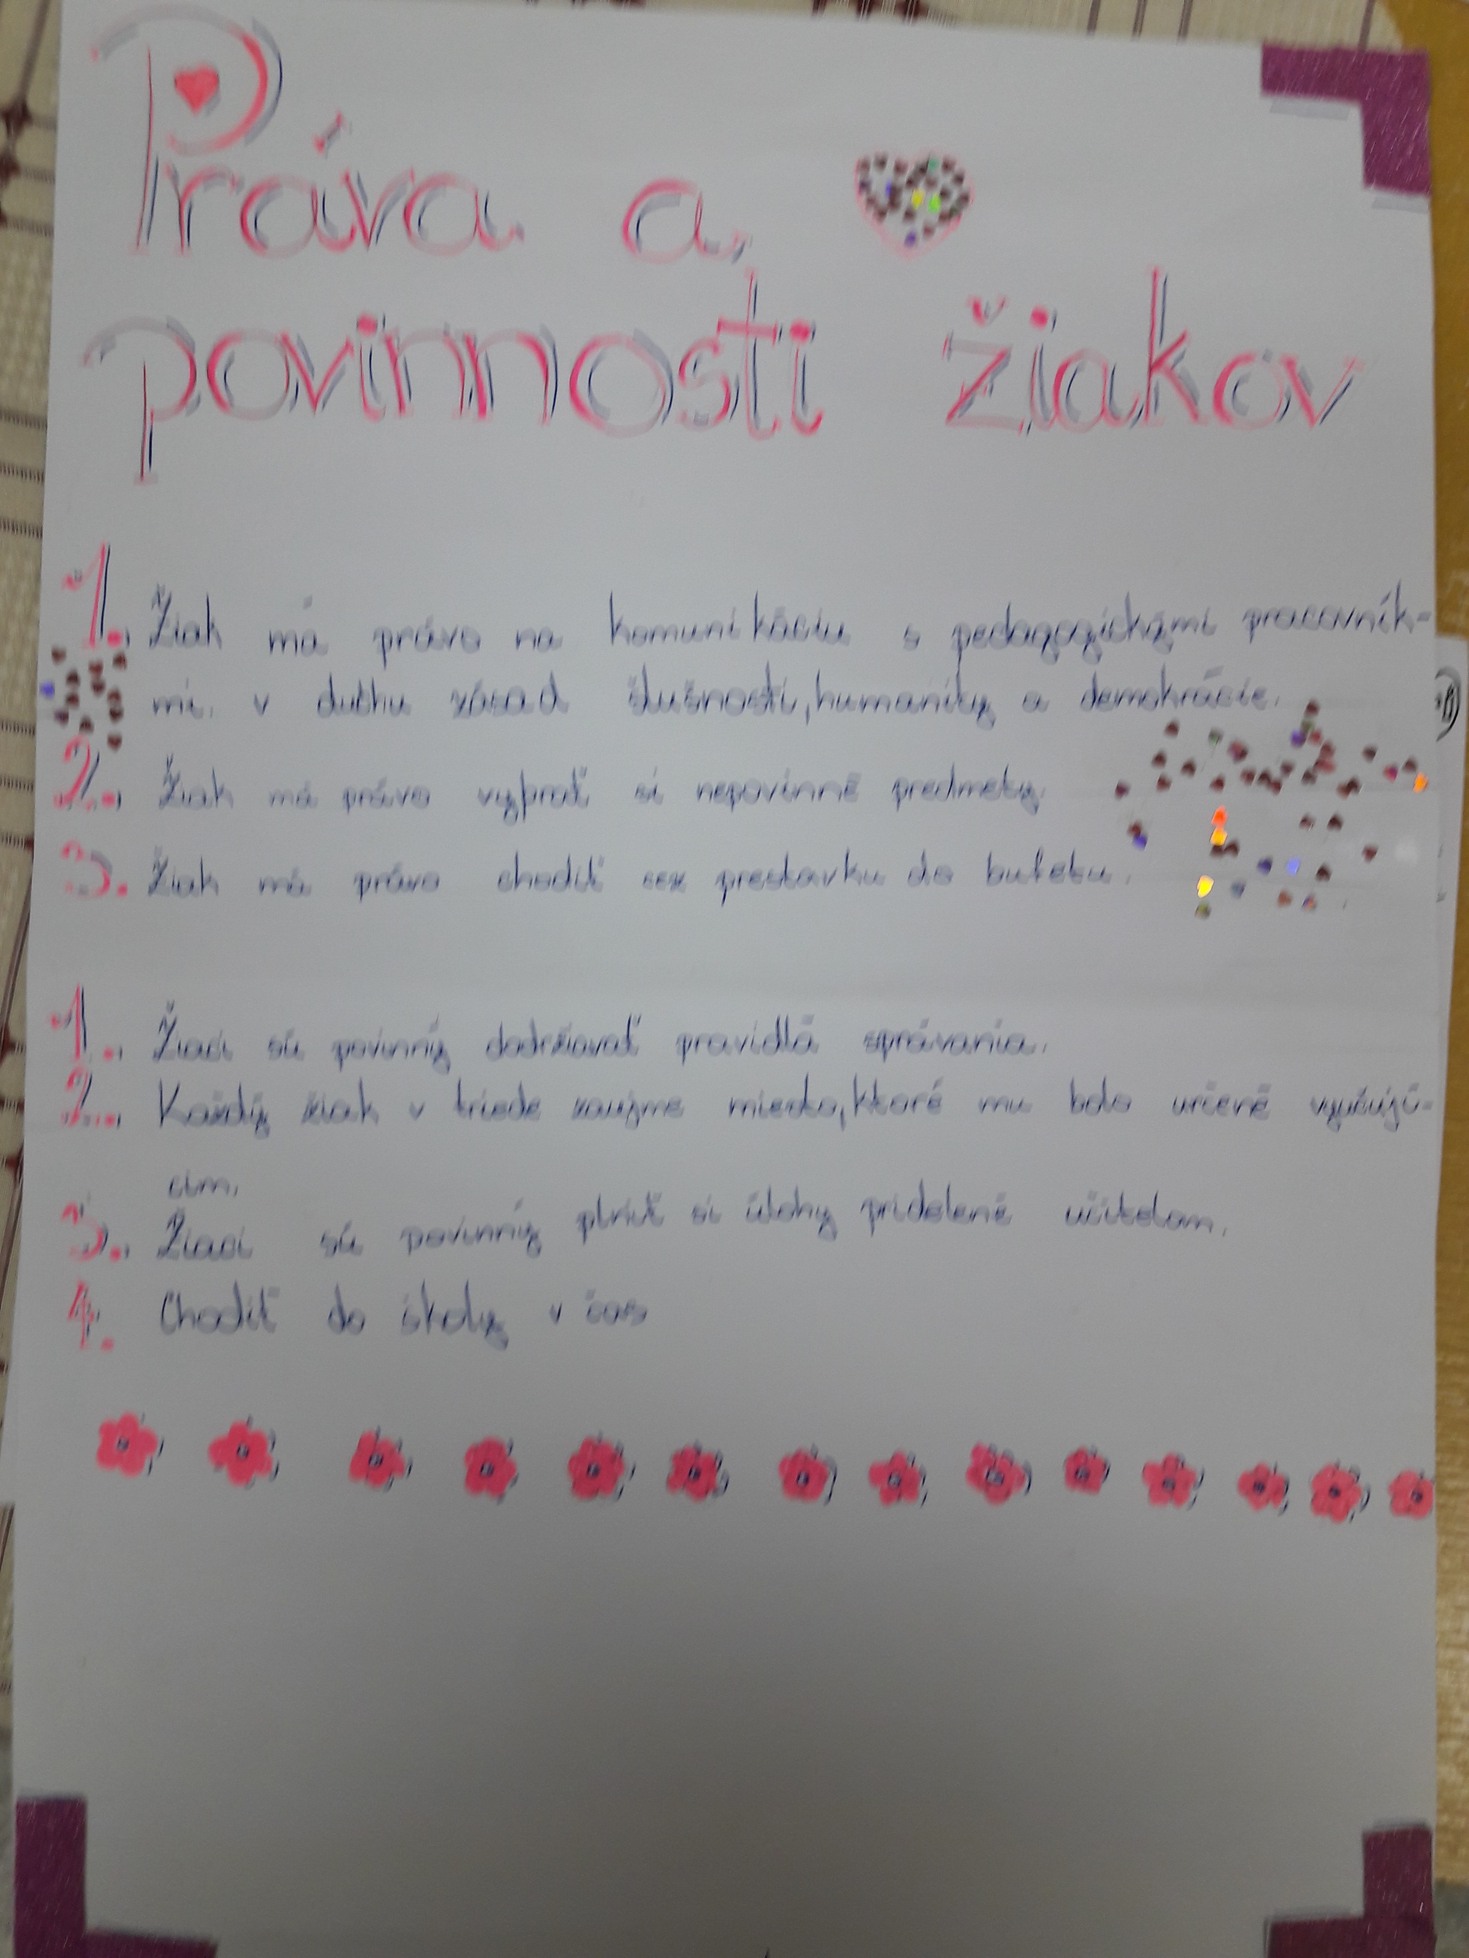 Práva a
povinnosti žiakov
1. Žiak má právo na komunikáciu s pedagogickými pracovník-
mi. v duchu zásad slušnosti, humanity a demokrácie.
2. Žiak má právo vybrať si nepovinné predmety.
3. Žiak má právo chodiť cez prestavku do bufetu.
1. Žiaci sú povinný dodržiavať pravidlá správania.
2. Každý žiak v triede zaujme miesto, ktoré mu bolo určené vyučujú-
cim.
3. Žiaci sú povinný plniť si úlohy pridelené učitelom.
4. Chodiť do školy v čas